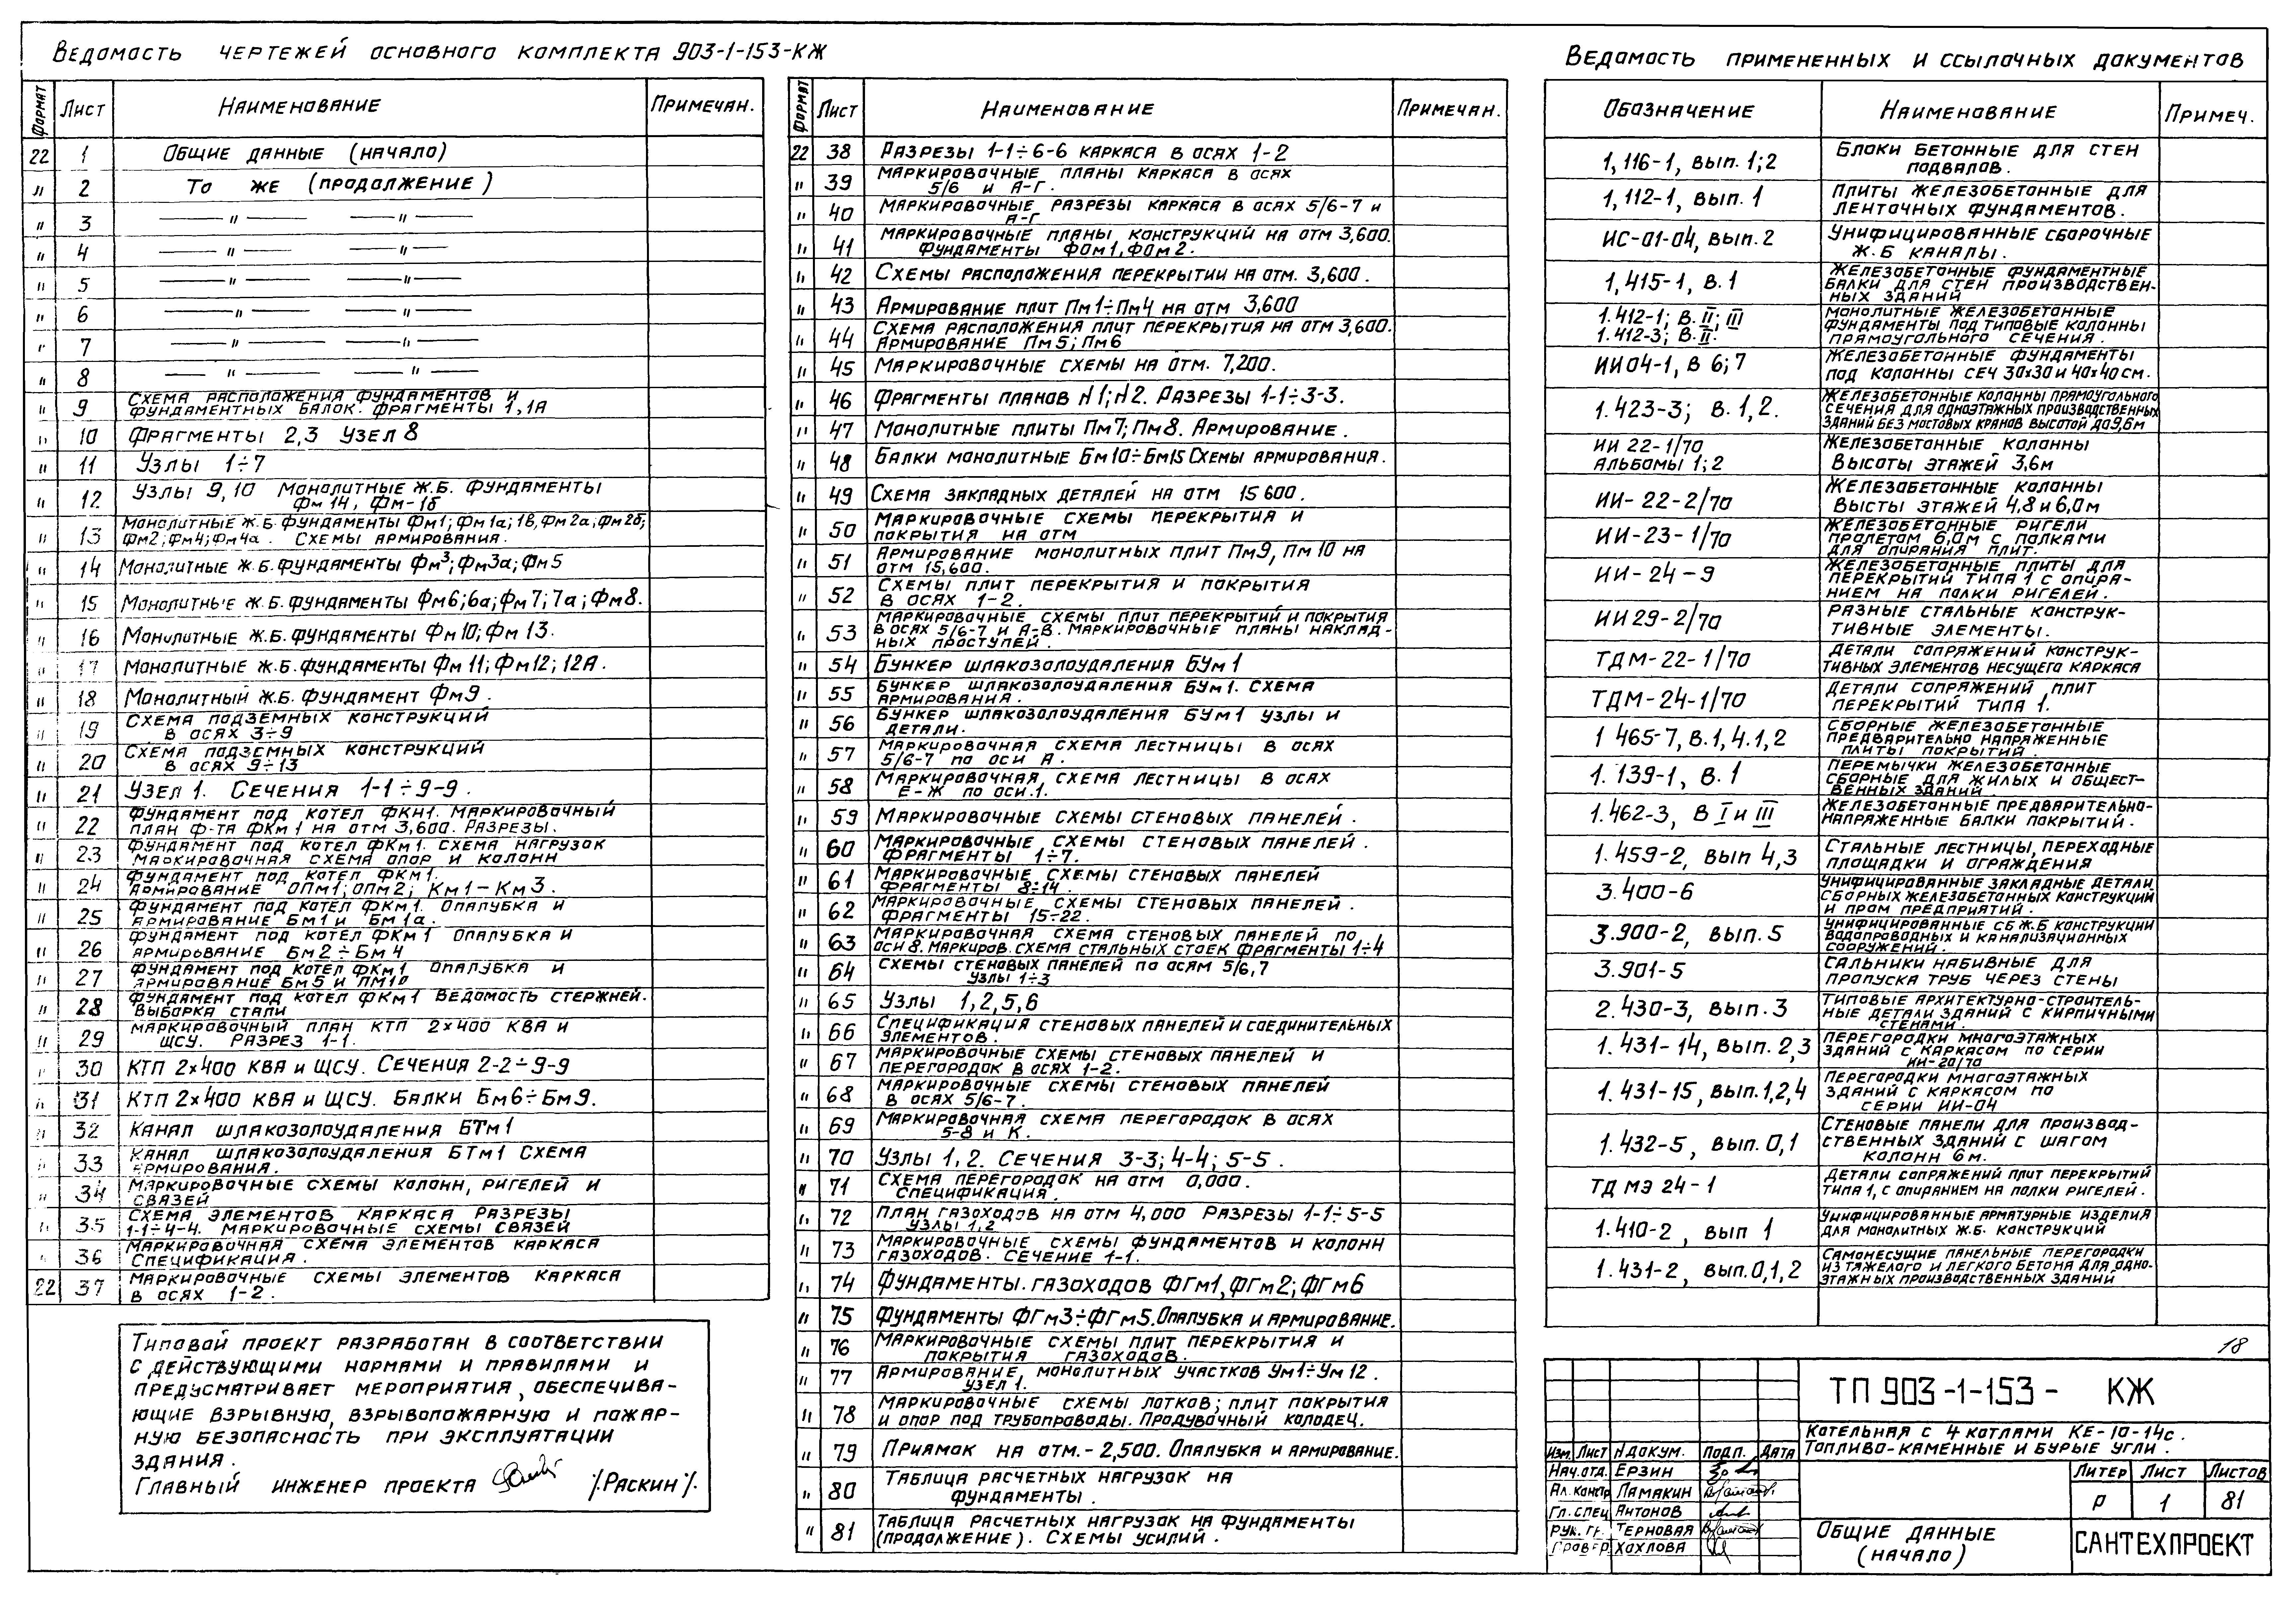 Ведомость чертежей основного комплекта 903-1-153-КЖ
Формат Лист Наименование Примечан.
22 1 Общие данные (начало)
" 2 То же (продолжение)
" 3 — " — — " —
" 4 — " — — " —
" 5 — " — — " —
" 6 — " — — " —
" 7 — " — — " —
" 8 — " — — " —
" 9 Схема расположения фундаментов и
фундаментных балок. Фрагменты 1, 1А
" 10 Фрагменты 2,3 Узел 8
" 11 Узлы 1÷7
" 12 Узлы 9,10 Монолитные ж.б. фундаменты
Фм14, Фм-1б
" 13 Монолитные ж.б. фундаменты Фм1; Фм1а; 1в, Фм2а; Фм2б;
Фм2; Фм4; Фм4а. Схемы армирования.
" 14 Монолитные ж.б. фундаменты Фм3; Фм3а; Фм5
" 15 Монолитные ж.б. фундаменты Фм6; 6а; Фм7; 7а; Фм8.
" 16 Монолитные ж.б. фундаменты Фм10; Фм13.
" 17 Монолитные ж.б. фундаменты Фм11; Фм12; 12А.
" 18 Монолитный ж.б. фундамент Фм9.
" 19 Схема подземных конструкций
в осях 3÷9
" 20 Схема подземных конструкций
в осях 9÷13
" 21 Узел 1. Сечения 1-1÷9-9.
" 22 Фундамент под котел ФКм1. Маркировочный
план ф-та ФКм1 на отм 3,600. Разрезы.
" 23 Фундамент под котел ФКм1. Схема нагрузок
Маркировочная схема опор и колонн
" 24 Фундамент под котел ФКм1.
Армирование ОПм1; ОПм2; Км1-Км3.
" 25 Фундамент под котел ФКм1. Опалубка и
армирование Бм1 и Бм1а.
" 26 Фундамент под котел ФКм1 Опалубка и
армирование Бм2÷Бм4
" 27 Фундамент под котел ФКм1 Опалубка и
армирование Бм5 и ПМ10
" 28 Фундамент под котел ФКм1 Ведомость стержней.
Выборка стали
" 29 Маркировочный план КТП 2×400 ква и
ЩСУ. Разрез 1-1.
" 30 КТП 2×400 ква и ЩСУ. Сечения 2-2÷9-9
" 31 КТП 2×400 ква и ЩСУ. Балки Бм6÷Бм9.
" 32 Канал шлакозолоудаления БТм1
" 33 Канал шлакозолоудаления БТм1 Схема
армирования.
" 34 Маркировочные схемы колонн, ригелей и
связей
" 35 Схема элементов каркаса Разрезы
1-1÷4-4. Маркировочные схемы связей
" 36 Маркировочная схема элементов каркаса
Спецификация.
22 37 Маркировочные схемы элементов каркаса
в осях 1-2.
Типовой проект разработан в соответствии
с действующими нормами и правилами и
предусматривает мероприятия, обеспечива-
ющие взрывную, взрывопожарную и пожар-
ную безопасность при эксплуатации
здания.
Главный инженер проекта /.Раскин/.
Формат Лист Наименование Примечан.
22 38 Разрезы 1-1÷6-6 каркаса в осях 1-2
" 39 Маркировочные планы каркаса в осях
5/6 и А-Г.
" 40 Маркировочные разрезы каркаса в осях 5/6-7 и
А-Г
" 41 Маркировочные планы конструкций на отм 3,600.
Фундаменты ФОм1, ФОм2.
" 42 Схемы расположения перекрытии на отм. 3,600.
" 43 Армирование плит Пм1÷Пм4 на отм 3,600
" 44 Схема расположения плит перекрытия на отм 3,600.
Армирование Пм5; Пм6
" 45 Маркировочные схемы на отм. 7,200.
" 46 Фрагменты планов N1; N2. Разрезы 1-1÷3-3.
" 47 Монолитные плиты Пм7; Пм8. Армирование.
" 48 Балки монолитные Бм10÷Бм15 Схемы армирования.
" 49 Схема закладных деталей на отм 15 600.
" 50 Маркировочные схемы перекрытия и
покрытия на отм
" 51 Армирование монолитных плит Пм9, Пм10 на
отм 15,600.
" 52 Схемы плит перекрытия и покрытия
в осях 1-2.
" 53 Маркировочные схемы плит перекрытий и покрытия
в осях 5/6-7 и А-В. Маркировочные планы наклад-
ных проступей.
" 54 Бункер шлакозолоудаления БУм1
" 55 Бункер шлакозолоудаления БУм1. Схема
армирования.
" 56 Бункер шлакозолоудаления БУм1 узлы и
детали.
" 57 Маркировочная схема лестницы в осях
5/6-7 по оси А.
" 58 Маркировочная схема лестницы в осях
Е-Ж по оси.1.
" 59 Маркировочные схемы стеновых панелей.
" 60 Маркировочные схемы стеновых панелей.
Фрагменты 1÷7.
" 61 Маркировочные схемы стеновых панелей
Фрагменты 8÷14.
" 62 Маркировочные схемы стеновых панелей.
Фрагменты 15-22.
" 63 Маркировочная схема стеновых панелей по
оси 8. Маркиров. схема стальных стоек фрагменты 1÷4
" 64 Схемы стеновых панелей по осям 5/6,7
Узлы 1÷3
" 65 Узлы 1, 2, 5, 6
" 66 Спецификация стеновых панелей и соединительных
элементов.
" 67 Маркировочные схемы стеновых панелей и
перегородок в осях 1-2.
" 68 Маркировочные схемы стеновых панелей
в осях 5/6-7.
" 69 Маркировочная схема перегородок в осях
5-8 и К.
" 70 Узлы 1, 2. Сечения 3-3; 4-4; 5-5.
" 71 Схема перегородок на отм 0,000.
Спецификация.
" 72 План газоходов на отм 4,000 Разрезы 1-1÷5-5
Узлы 1,2
" 73 Маркировочные схемы фундаментов и колонн
газоходов. Сечение 1-1.
" 74 Фундаменты. газоходов ФГм1, ФГм2; ФГм6
" 75 Фундаменты ФГм3÷ФГм5. Опалубка и армирование.
" 76 Маркировочные схемы плит перекрытия и
покрытия газоходов.
" 77 Армирование монолитных участков Ум1÷Ум12.
Узел 1.
" 78 Маркировочные схемы лотков; плит покрытия
и опор под трубопроводы. Продувочный колодец.
" 79 Приямок на отм.-2,500. Опалубка и армирование.
" 80 Таблица расчетных нагрузок на
фундаменты.
" 81 Таблица расчетных нагрузок на фундаменты
(продолжение). Схемы усилий.
Ведомость примененных и ссылочных документов
Обозначение Наименование Примеч.
1,116-1, вып. 1;2 Блоки бетонные для стен
подвалов.
1,112-1, вып. 1 Плиты железобетонные для
ленточных фундаментов.
ИС-01-04, вып. 2 Унифицированные сборочные
ж.б каналы.
1,415-1, в.1 Железобетонные фундаментные
балки для стен производствен-
ных зданий
1.412-1; В. II; III Монолитные железобетонные
1.412-3; В. II. фундаменты под типовые колонны
прямоугольного сечения.
ИИ04-1, в 6; 7 Железобетонные фундаменты
под колонны сеч 30×30 и 40×40 см.
1.423-3; в. 1, 2. Железобетонные колонны прямоугольного
сечения для одноэтажных производственных
зданий без мостовых кранов высотой до 9,6м
ИИ 22-1/70 Железобетонные колонны
альбомы 1; 2 Высоты этажей 3,6м
ИИ-22-2/70 Железобетонные колонны
Высты этажей 4,8 и 6,0м
ИИ-23-1/70 Железобетонные ригели
пролетом 6,0м с полками
для опирания плит.
ИИ-24-9 Железобетонные плиты для
перекрытий типа 1 с опира-
нием на полки ригелей.
ИИ29-2/70 Разные стальные конструк-
тивные элементы.
ТДМ-22-1/70 Детали сопряжений конструк-
тивных элементов несущего каркаса
ТДМ-24-1/70 Детали сопряжений плит
перекрытий типа 1.
1 465-7, в.1, 4.1, 2 Сборные железобетонные
предварительно напряженные
плиты покрытий.
1. 139-1, в. 1 Перемычки железобетонные
сборные для жилых и общест-
венных зданий
1.462-3, в I и III Железобетонные предварительно-
напряженные балки покрытий.
1. 459-2, вып 4,3 Стальные лестницы, переходные
площадки и ограждения
3.400-6 Унифицированные закладные детали
сборных железобетонных конструкций
и пром предприятий.
3.900-2, вып. 5 Унифицированные сб ж.б конструкции
водопроводных и канализационных
сооружений.
3.901-5 Сальники набивные для
пропуска труб через стены
2.430-3, вып. 3 Типовые архитектурно-строитель-
ные детали зданий с кирпичными
стенами.
1. 431-14, вып. 2,3 Перегородки многоэтажных
зданий с каркасом по серии
ИИ-20/70
1. 431-15, вып. 1,2,4 Перегородки многоэтажных
зданий с каркасом по
серии ИИ-04
1. 432-5, вып. 0,1 Стеновые панели для производ-
ственных зданий с шагом
колонн 6м.
ТД МЭ 24-1 Детали сопряжений плит перекрытий
типа 1, с опиранием на полки ригелей.
1. 410-2, вып 1 Унифицированные арматурные изделия
для монолитных ж.б. конструкций
1. 431-2, вып. 0,1,2 Самонесущие панельные перегородки
из тяжелого и легкого бетона для одно-
этажных производственных зданий
18
ТП 903-1-153- КЖ
Котельная с 4 котлами КЕ-10-14с.
Топливо-каменные и бурые угли.
Изм. Лист N докум. Подп. Дата
Нач. отд. Ерзин
Гл. констр Ламакин
Гл. спец Антонов
Рук. гр. Терновая
Провер. Хахлова
Литер Лист Листов
Р 1 81
Общие данные
(начало)
САНТЕХПРОЕКТ